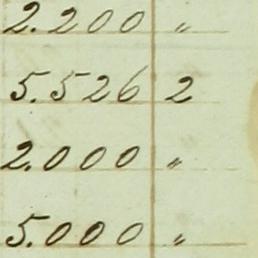 2.200 "
5.526 2
2.000 "
5.000 "